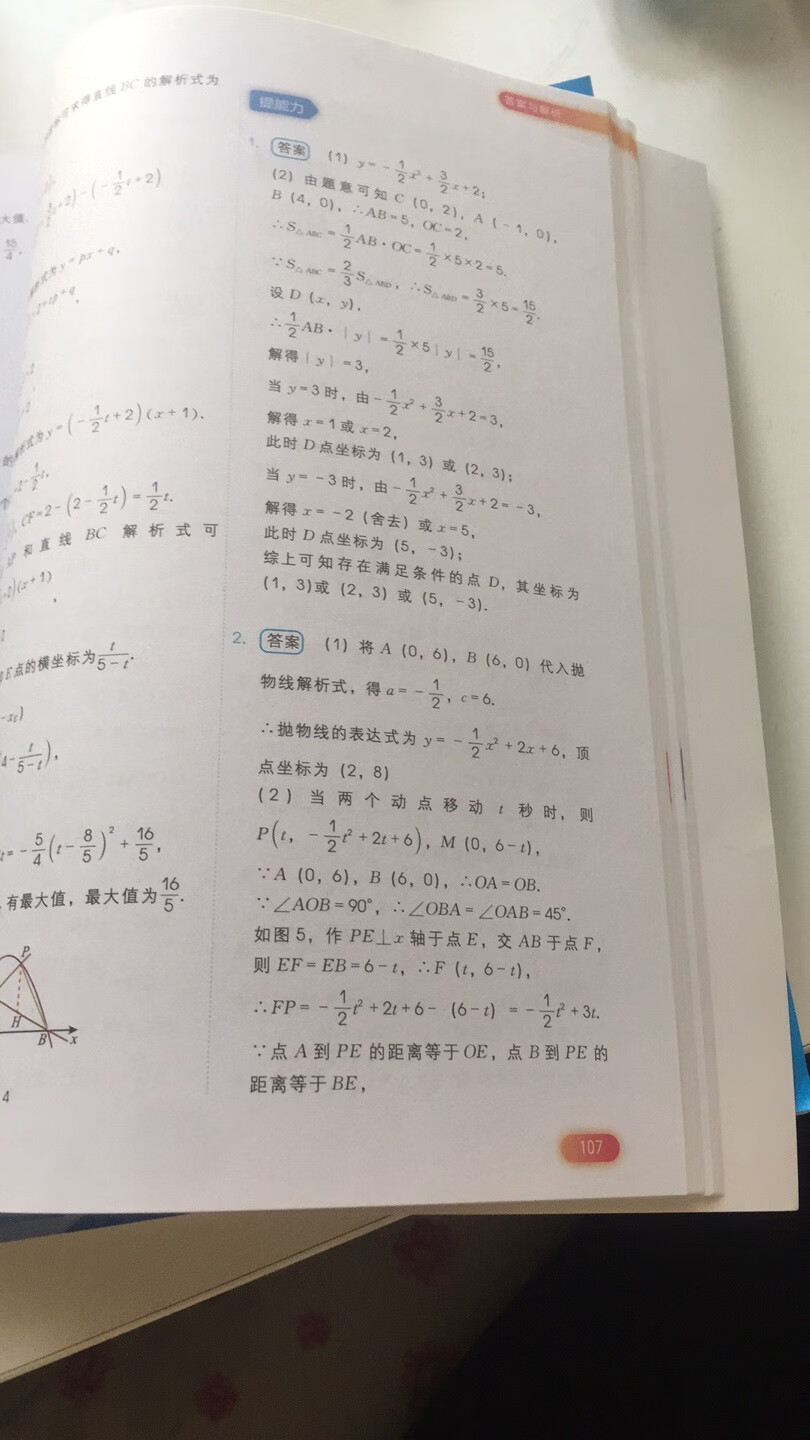 大值.
的解析式为
解析式为y=px+q,
的解析式为y=(-1/2t+2)(x+1).
CF=2-(2-1/2t)=1/2t.
和直线BC解析式可
E点的横坐标为t/(5-t).
t=-5/4(t-8/5)²+16/5,
有最大值，最大值为16/5.
P
H
B
x
4
答案与解析
提能力
1. 答案 (1) y=-1/2x²+3/2x+2;
(2) 由题意可知C(0, 2), A(-1, 0),
B(4, 0), ∴AB=5, OC=2,
∴S△ABC=1/2AB·OC=1/2×5×2=5.
∵S△ABC=2/3S△ABD, ∴S△ABD=3/2×5=15/2.
设D(x, y),
∴1/2AB·|y|=1/2×5|y|=15/2,
解得|y|=3,
当y=3时, 由-1/2x²+3/2x+2=3,
解得x=1或x=2,
此时D点坐标为(1, 3)或(2, 3);
当y=-3时, 由-1/2x²+3/2x+2=-3,
解得x=-2(舍去)或x=5,
此时D点坐标为(5, -3);
综上可知存在满足条件的点D, 其坐标为
(1, 3)或(2, 3)或(5, -3).
2. 答案 (1) 将A(0, 6), B(6, 0)代入抛
物线解析式, 得a=-1/2, c=6.
∴抛物线的表达式为y=-1/2x²+2x+6, 顶
点坐标为(2, 8)
(2) 当两个动点移动t秒时, 则
P(t, -1/2t²+2t+6), M(0, 6-t),
∵A(0, 6), B(6, 0), ∴OA=OB.
∵∠AOB=90°, ∴∠OBA=∠OAB=45°.
如图5, 作PE⊥x轴于点E, 交AB于点F,
则EF=EB=6-t, ∴F(t, 6-t),
∴FP=-1/2t²+2t+6-(6-t)=-1/2t²+3t.
∵点A到PE的距离等于OE, 点B到PE的
距离等于BE,
107